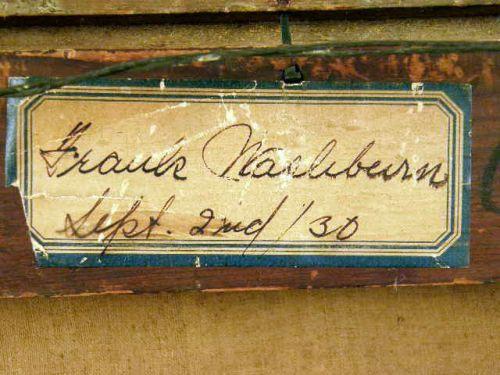 Frank Washburn
Sept. 2nd/30